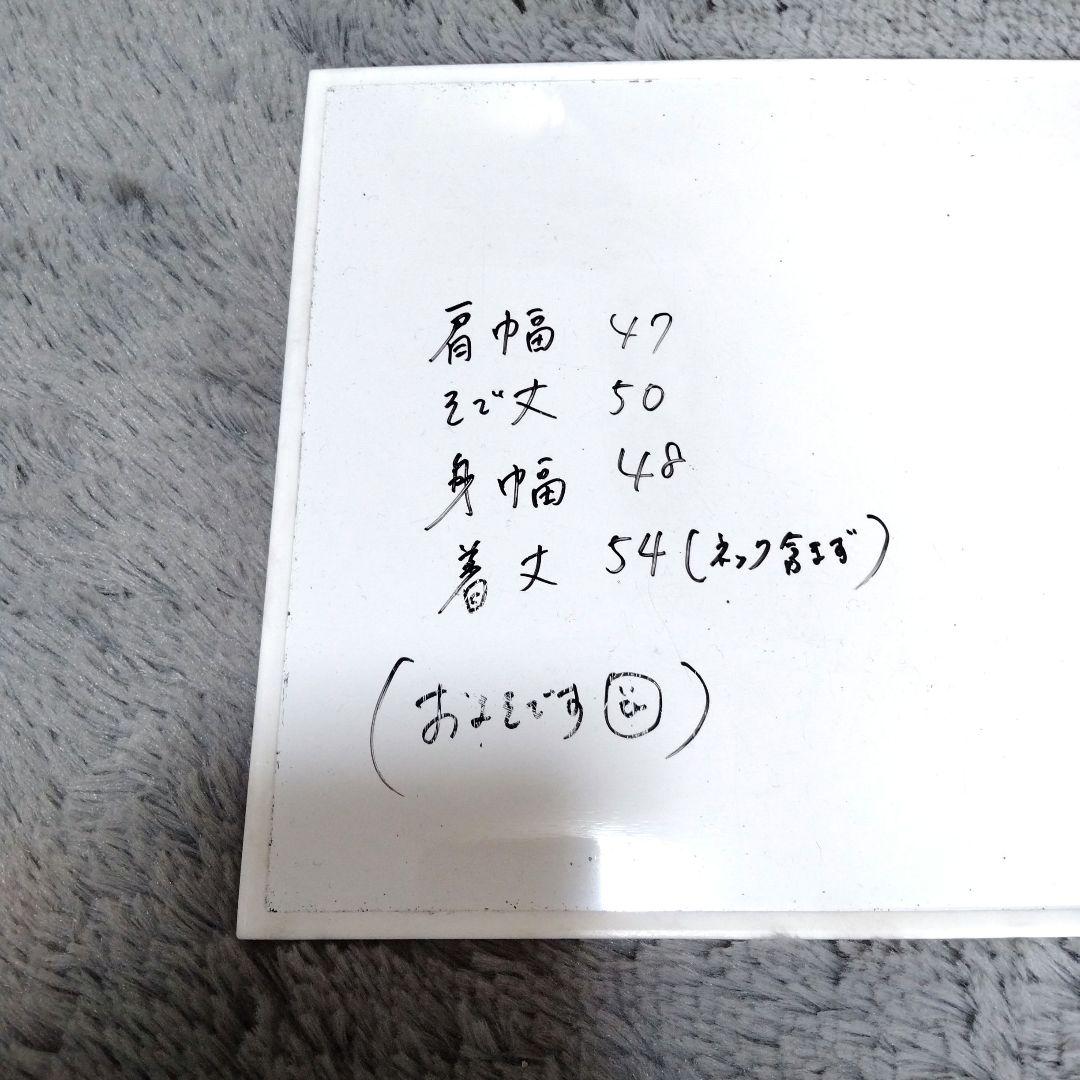 肩巾幅 47
そで丈 50
身幅 48
着丈 54(ネック含まず)
(およそです)